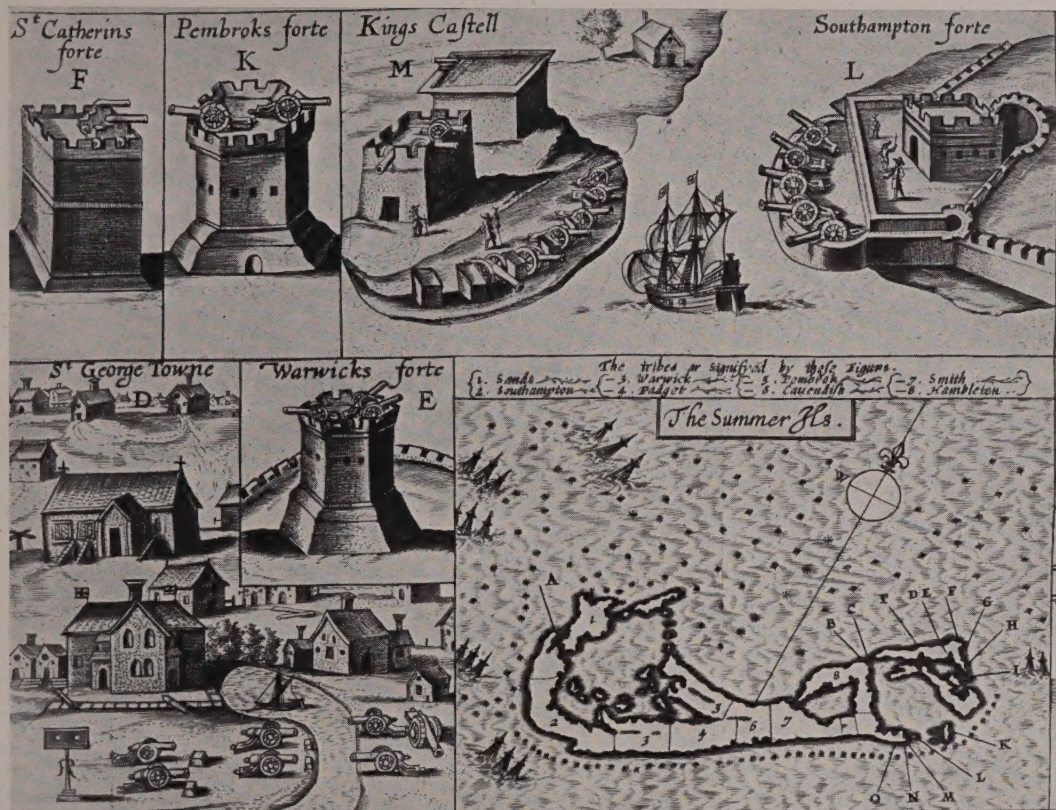 St Catherins
forte
F
Pembroks forte
K
Kings Castell
M
Southampton forte
L
St George Towne
D
Warwicks forte
E
The tribes ar signifyed by these Figurs.
1. Sands
2. Southampton
3. Warwick
4. Padget
5. Pembrok
6. Cavendish
7. Smith
8. Hambleton
The Summer Ils.
W
A
B
C
P
D E
F
G
H
I
K
L
M
N
O
1
2
3
4
5
6
7
8